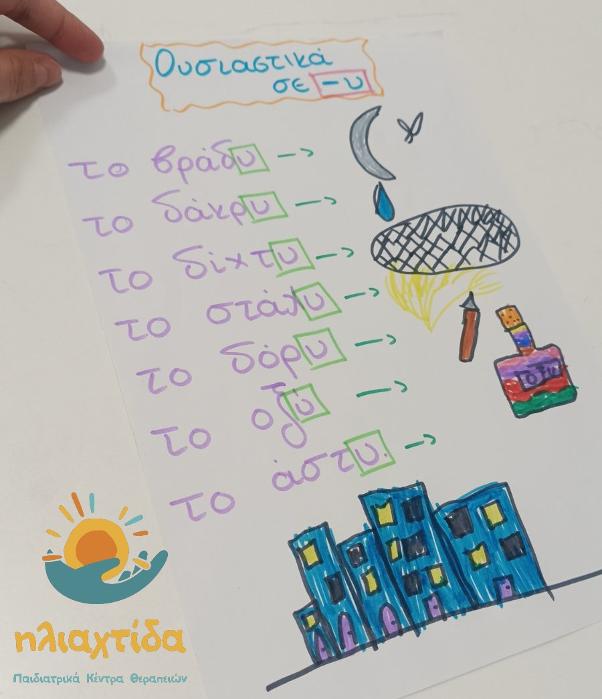 Ουσιαστικά
σε -υ
το βράδυ
το δάκρυ
το δίχτυ
το στάχυ
το δόρυ
το οξύ
οξύ
το άστυ.
ηλιαχτίδα
Παιδιατρικά Κέντρα Θεραπειών